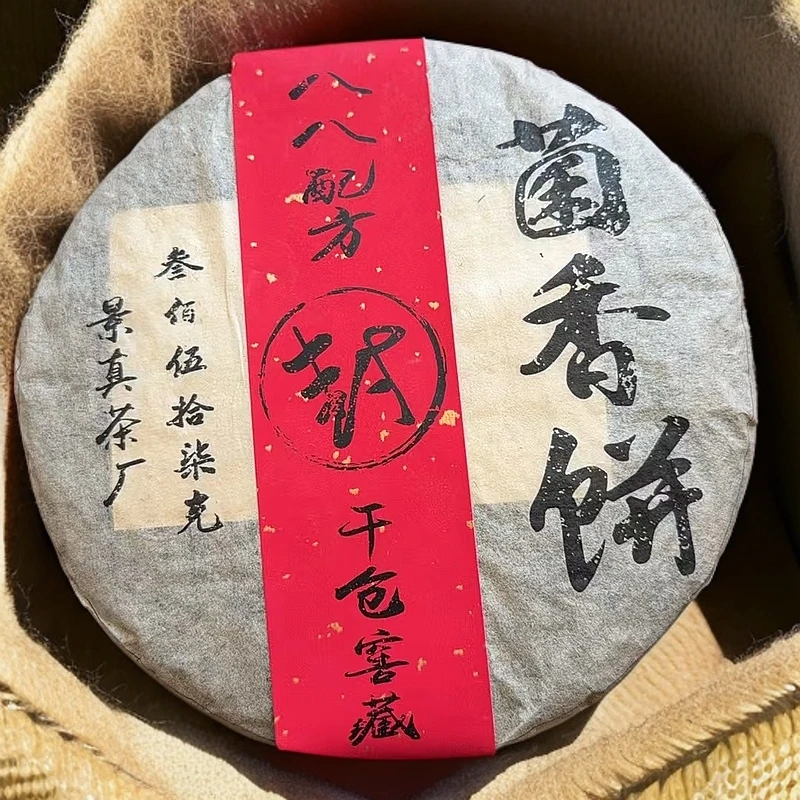 菌香饼
八八配方
干仓窖藏
叁佰伍拾柒克
景真茶厂